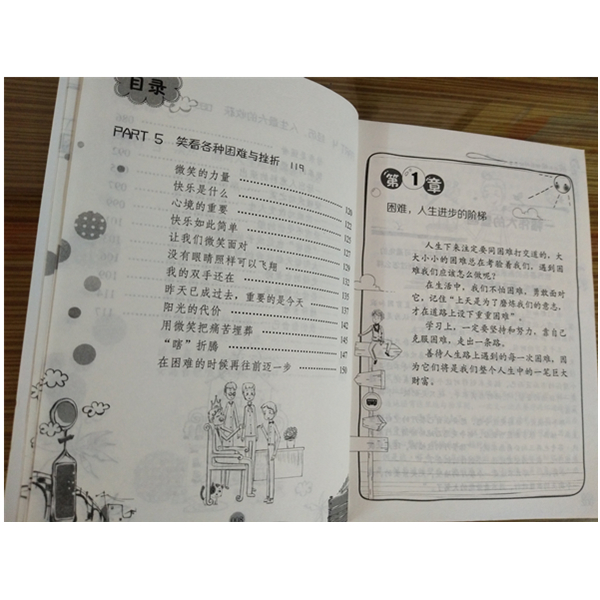 目录
PART 5 笑看各种困难与挫折 119
微笑的力量 120
快乐是什么 122
心境的重要 125
快乐如此简单 125
让我们微笑面对 127
没有眼睛照样可以飞翔 129
我的双手还在 132
昨天已成过去，重要的是今天 135
阳光的代价 137
用微笑把痛苦埋葬 142
“瞎”折腾 147
在困难的时候再往前迈一步 150
第1章
困难，人生进步的阶梯
人生下来注定要同困难打交道的，大
大小小的困难总在考验着我们，遇到困
难我们应该怎么做呢？
在生活中，我们不怕困难，勇敢面对
它，记住“上天是为了磨炼我们的意志，
才在道路上设下重重困难”。
学习上，一定要坚持和努力，靠自己
克服困难，走出一条路。
善待人生路上遇到的每一次困难，因
为它们将是我们整个人生中的一笔巨大
财富。